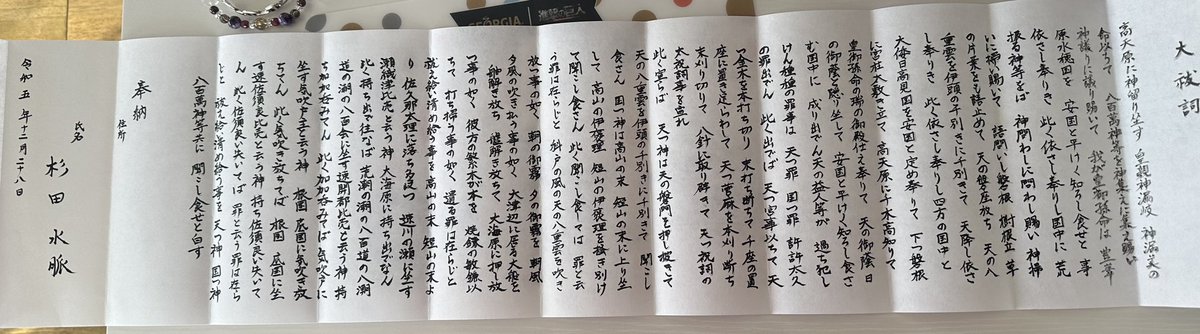 大祓詞
高天原に神留り坐す 皇親神漏岐 神漏美の
命以ちて 八百萬神等を神集えに集え賜い
神議りに議り賜いて 我が皇御孫命は 豊葦
原水穂国を 安国と平けく知ろし食せと 事
依さし奉りき 此く依さし奉りし国中に 荒
振る神等をば 神問わしに問わし賜い 神掃
いに掃い賜いて 語問いし磐根 樹根立 草
の片葉をも語止めて 天の磐座放ち 天の八
重雲を伊頭の千別きに千別きて 天降し依さ
し奉りき 此く依さし奉りし四方の国中と
大倭日高見国を安国と定め奉りて 下つ磐根
に宮柱太敷き立て 高天原に千木高知りて
皇御孫命の瑞の御殿仕え奉りて 天の御陰 日
の御陰と隠り坐して 安国と平けく知ろし食さ
む国中に 成り出でん天の益人等が 過ち犯し
けん種種の罪事は 天つ罪 国つ罪 許許太久
の罪出でん 此く出でば 天つ宮事以ちて 天
つ金木を本打ち切り 末打ち断ちて 千座の置
座に置き足らわして 天つ菅麻を本刈り断ち
末刈り切りて 八針に取り辟きて 天つ祝詞の
太祝詞事を宣れ
此く宣らば 天つ神は天の磐門を押し披きて
天の八重雲を伊頭の千別きに千別きて 聞こし
食さん 国つ神は高山の末 短山の末に上り坐
して 高山の伊褒理 短山の伊褒理を掻き別け
て聞こし食さん 此く聞こし食してば 罪と云
う罪は在らじと 科戸の風の天の八重雲を吹き
放つ事の如く 朝の御霧 夕の御霧を 朝風
夕風の吹き払う事の如く 大津辺に居る大船を
舳解き放ち 艫解き放ちて 大海原に押し放
つ事の如く 彼方の繁木が本を 焼鎌の敏鎌以
ちて 打ち掃う事の如く 遺る罪は在らじと
祓え給い清め給う事を 高山の末 短山の末よ
り 佐久那太理に落ち多岐つ 速川の瀬に坐す
瀬織津比売と云う神 大海原に持ち出でなん
此く持ち出で往なば 荒潮の潮の八百道の八潮
道の潮の八百会に坐す速開都比売と云う神 持
ち加加呑みてん 此く加加呑みてば 気吹戸に
坐す気吹戸主と云う神 根国 底国に気吹き放
ちてん 此く気吹き放ちてば 根国 底国に坐
す速佐須良比売と云う神 持ち佐須良い失いて
ん 此く佐須良い失いてば 罪と云う罪は在ら
じと 祓え給い清め給う事を 天つ神 国つ神
八百萬神等共に 聞こし食せと白す
奉納
住所
氏名 杉田水脈
令和五年十二月二十八日
GEORGIA
進撃の巨人